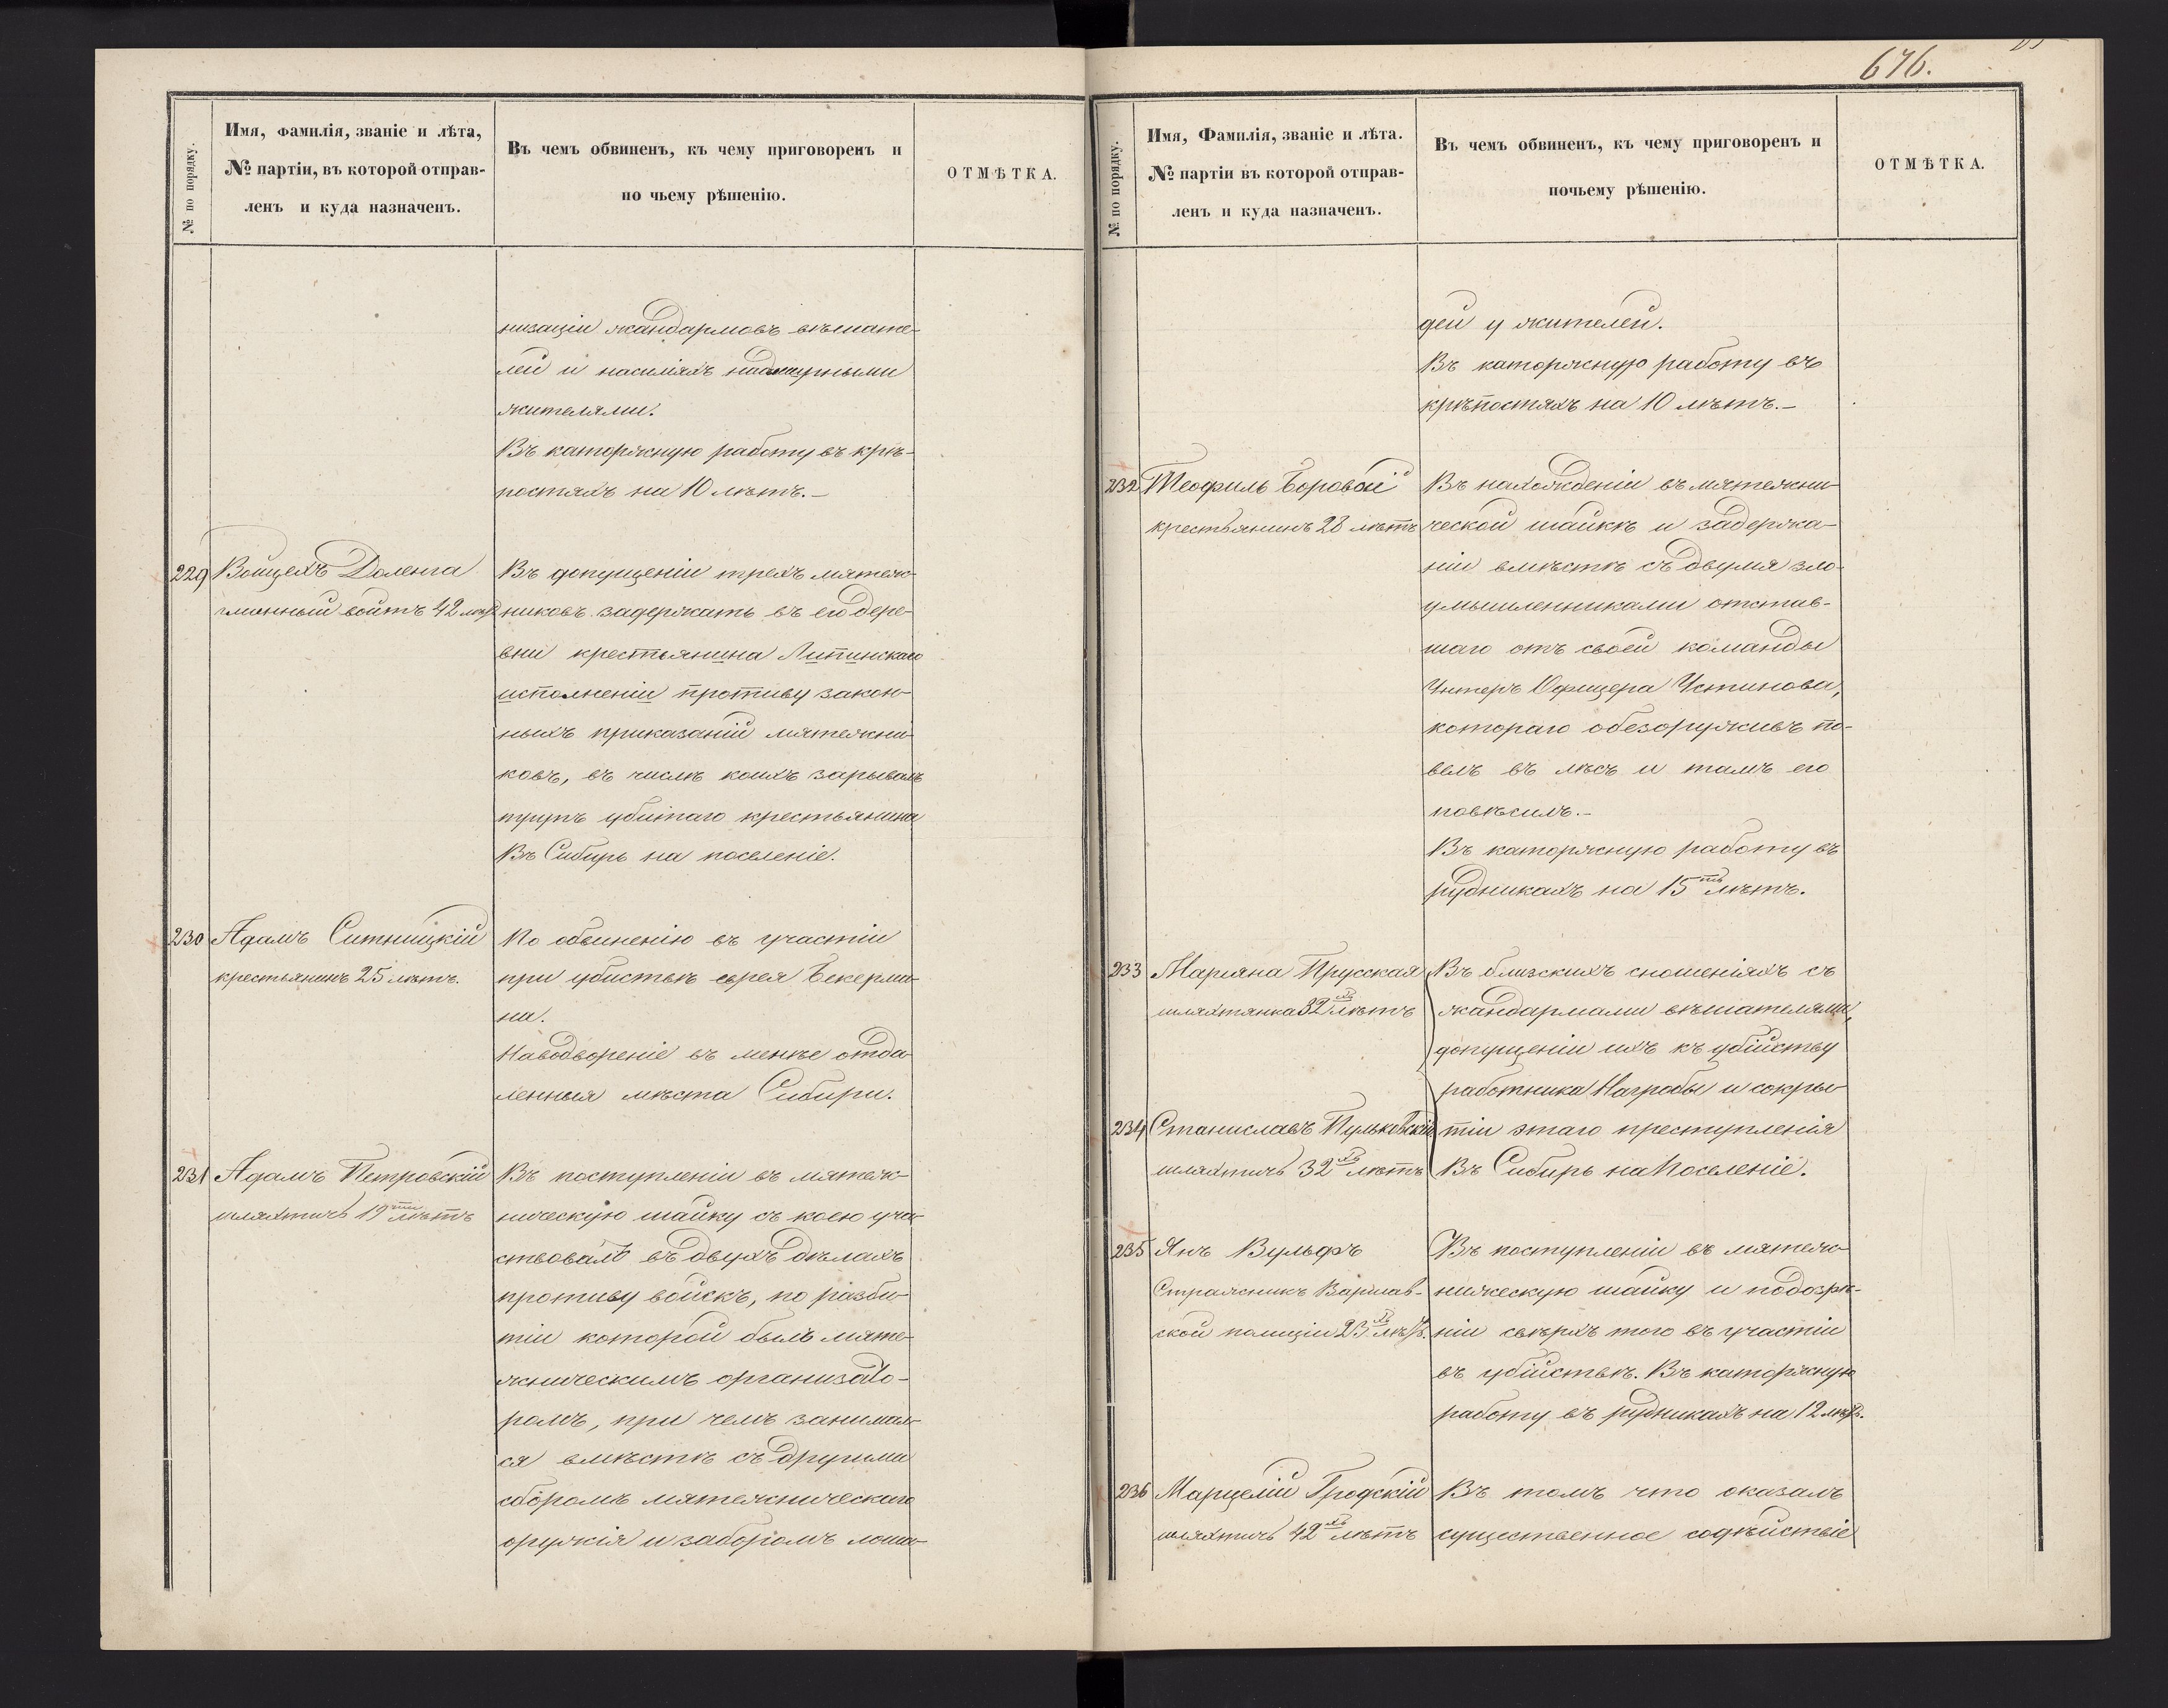 676.
№ по порядку.
Имя, фамилія, званіе и лѣта,
№ партіи, въ которой отправ-
ленъ и куда назначенъ.
Въ чемъ обвиненъ, къ чему приговоренъ и
по чьему рѣшенію.
ОТМѢТКА.
низаціи жандармовъ вѣшате-
лей и насиліяхъ надъ мирными
жителями.
Въ каторжную работу въ крѣ-
постяхъ на 10 лѣтъ.-
229 Войцехъ Доленга
гминный войтъ 42 лѣтъ
Въ допущеніи трехъ мятеж-
никовъ задержать въ его дере-
вни крестьянина Липинскаго
исполненіи противу закон-
ныхъ приказаній мятежни-
ковъ, въ числѣ коихъ зарывалъ
трупъ убитаго крестьянина
Въ Сибирь на поселеніе.
230 Адамъ Ситницкій
крестьянинъ 25 лѣтъ.
По обвиненію въ участіи
при убистьвѣ еврея Бекерма-
на.
На водвореніе въ менѣе отда-
ленныя мѣста Сибири.
231 Адамъ Петровскій
шляхтичъ 19ти лѣтъ
Въ поступленіи въ мятеж-
ническую шайку съ коею уча-
ствовалъ въ двухъ дѣлахъ
противу войскъ, по разби-
тіи которой былъ мяте-
жническимъ организато-
ромъ, при чемъ занимал-
ся вмѣстѣ съ другими
сборомъ мятежническаго
оружія и заборомъ лоша-
№ по порядку.
Имя, Фамилія, званіе и лѣта.
№ партіи въ которой отправ-
ленъ и куда назначенъ.
Въ чемъ обвиненъ, къ чему приговоренъ и
почьему рѣшенію.
ОТМѢТКА.
дей у жителей.
Въ каторжную работу въ
крѣпостяхъ на 10 лѣтъ.-
232 Теофиль Боровой
крестьянинъ 28 лѣтъ
Въ нахожденіи въ мятежни-
ческой шайкѣ и задержа-
ніи вмѣстѣ съ двумя зло-
умышленниками отстав-
шаго отъ своей команды
Унтеръ Офицера Устинова,
котораго обезоруживъ по-
велъ въ лѣсъ и тамъ его
повѣсилъ.-
Въ каторжную работу въ
рудникахъ на 15ть лѣтъ.
233 Маріяна Прусская
шляхтянка 32хъ лѣтъ
Въ близскихъ сношеніяхъ съ
жандармами вѣшателями,
допущеніи ихъ къ убійству
работника Нагробы и сокры-
234 Станиславъ Пульковскій
шляхтичъ 32хъ лѣтъ
тіи этаго преступленія
Въ Сибирь на Поселеніе.
235 Янъ Вульфъ
Стражникъ Варшав-
ской полиціи 23хъ лѣтъ.
Въ поступленіи въ мятеж-
ническую шайку и подозрѣ-
ніи сверхъ того въ участіи
въ убійствѣ. Въ каторжную
работу въ рудникахъ на 12 лѣтъ.
236 Марцелій Гродскій
шляхтичъ 42хъ лѣтъ
Въ томъ что оказалъ
существенное содѣйствіе